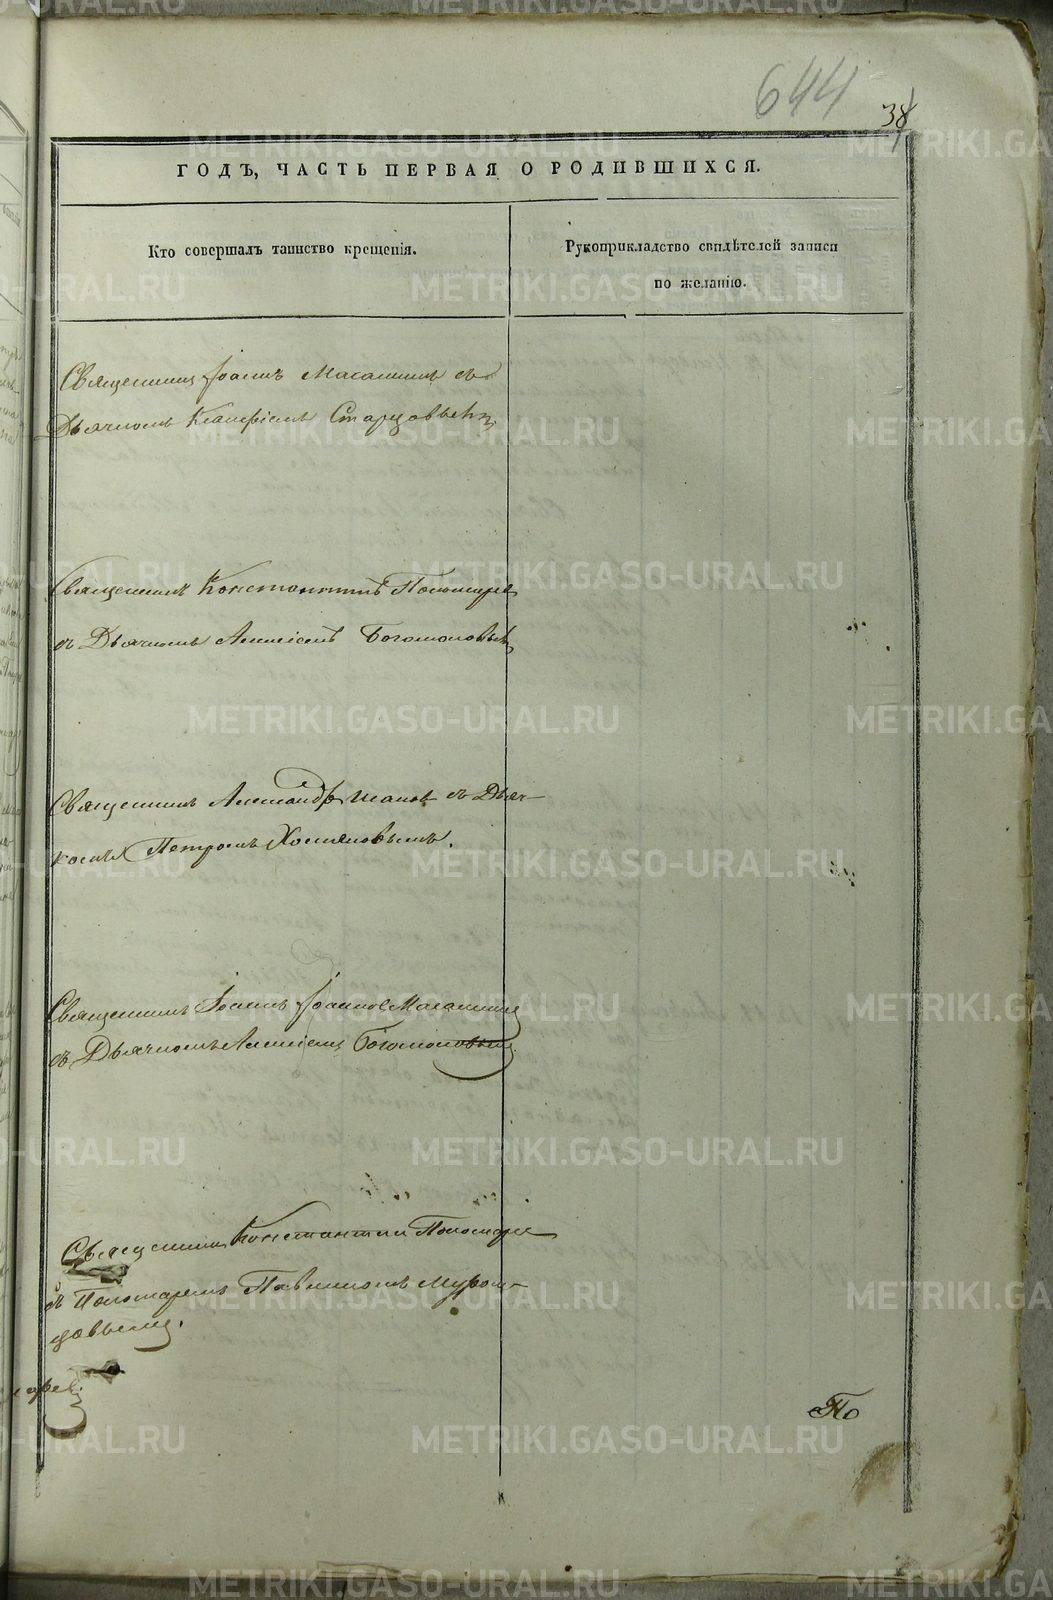 644
38
ГОДЪ, ЧАСТЬ ПЕРВАЯ О РОДИВШИХСЯ.
Кто совершалъ таинство крещенія.
Рукоприкладство свидѣтелей записи
по желанію.
Священникъ Іоаннъ съ
Дьячкомъ Старцовымъ
Священникъ Константинъ Пономаре
съ Дьячкомъ Алексіемъ Богомоловымъ
Священникъ Александръ съ Дьяч-
комъ Петромъ Хомяковымъ.
Священникъ Іоаннъ Іоанновъ
съ Дьячкомъ Алексіемъ Богомоловымъ
Священникъ Константинъ Пономаре
съ Пономаремъ Павлиномъ Муром-
цовымъ.
По
METRIKI.GASO-URAL.RU